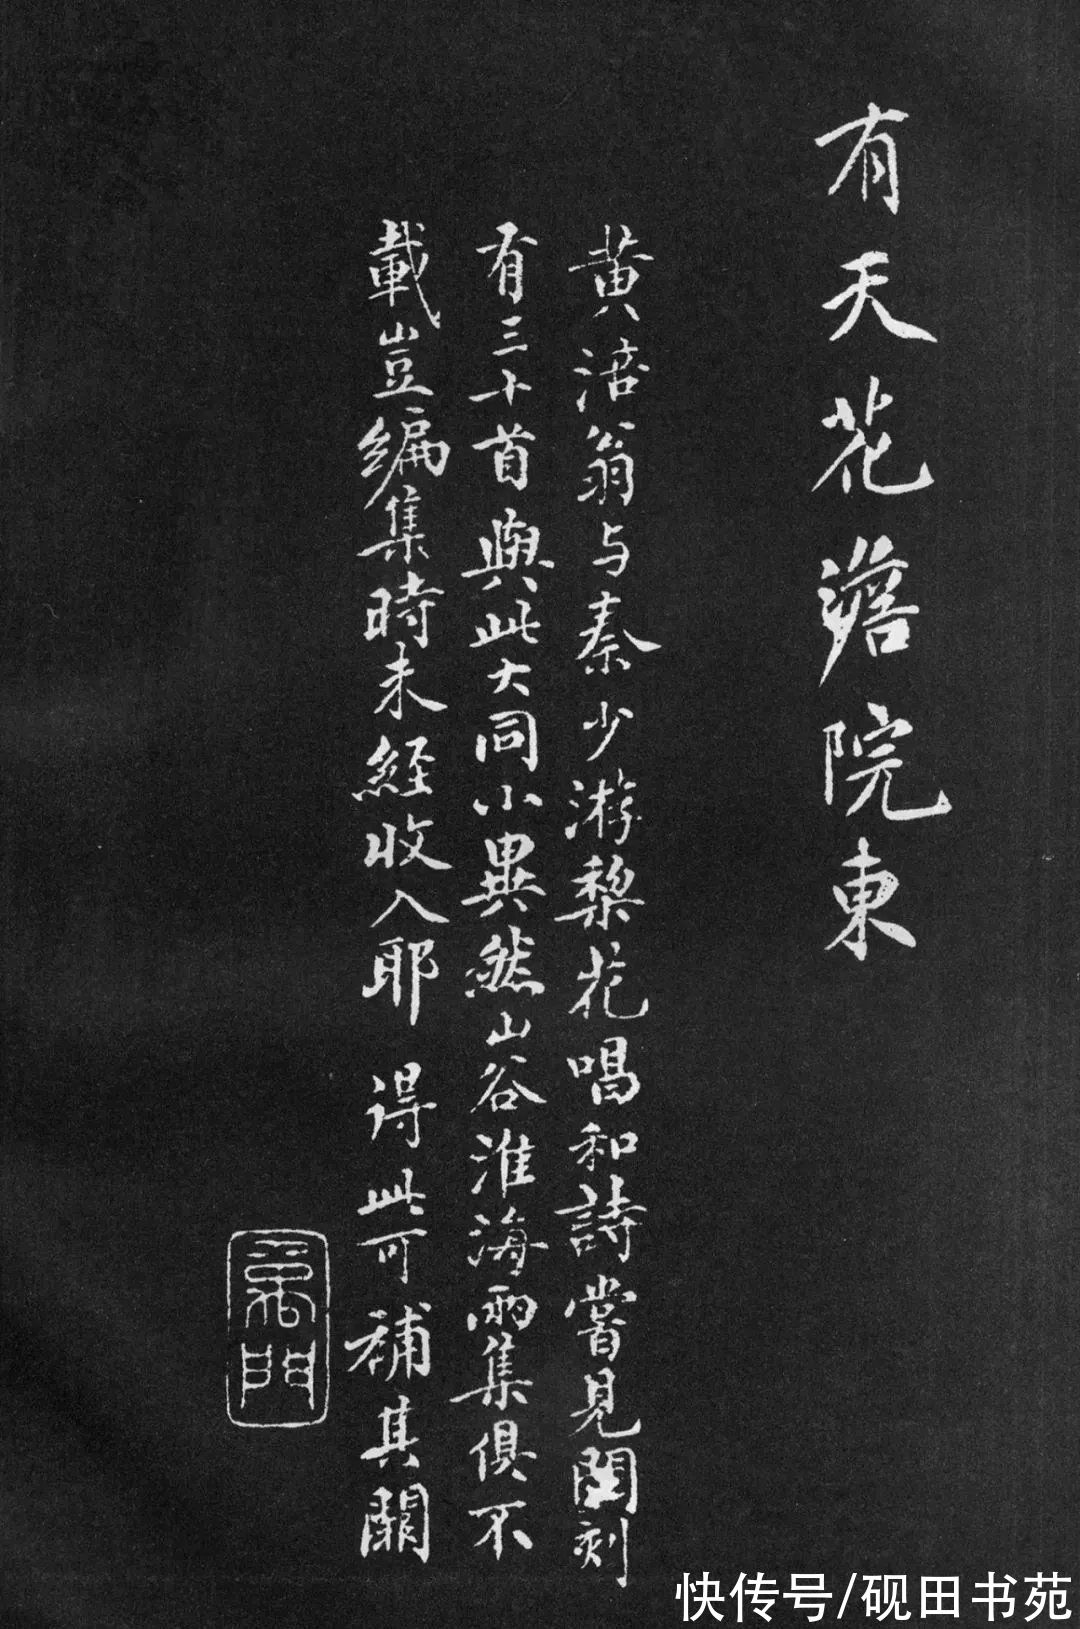 有天花澹院東
黄涪翁与秦少游棃花唱和詩嘗見閣刻
有三十首與此大同小異然山谷淮海兩集俱不
載豈編集時未經收入耶 得此可補其闕
快传号/砚田书苑